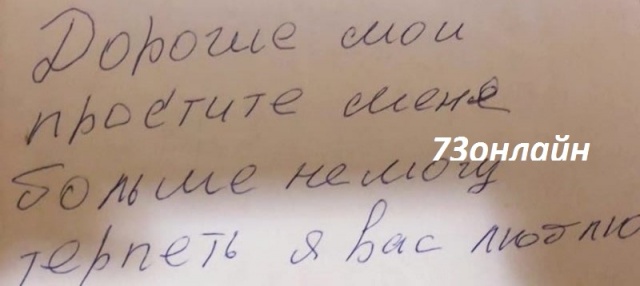 Дорогие мои
простите меня
73онлайн
больше немогу
терпеть я вас люблю